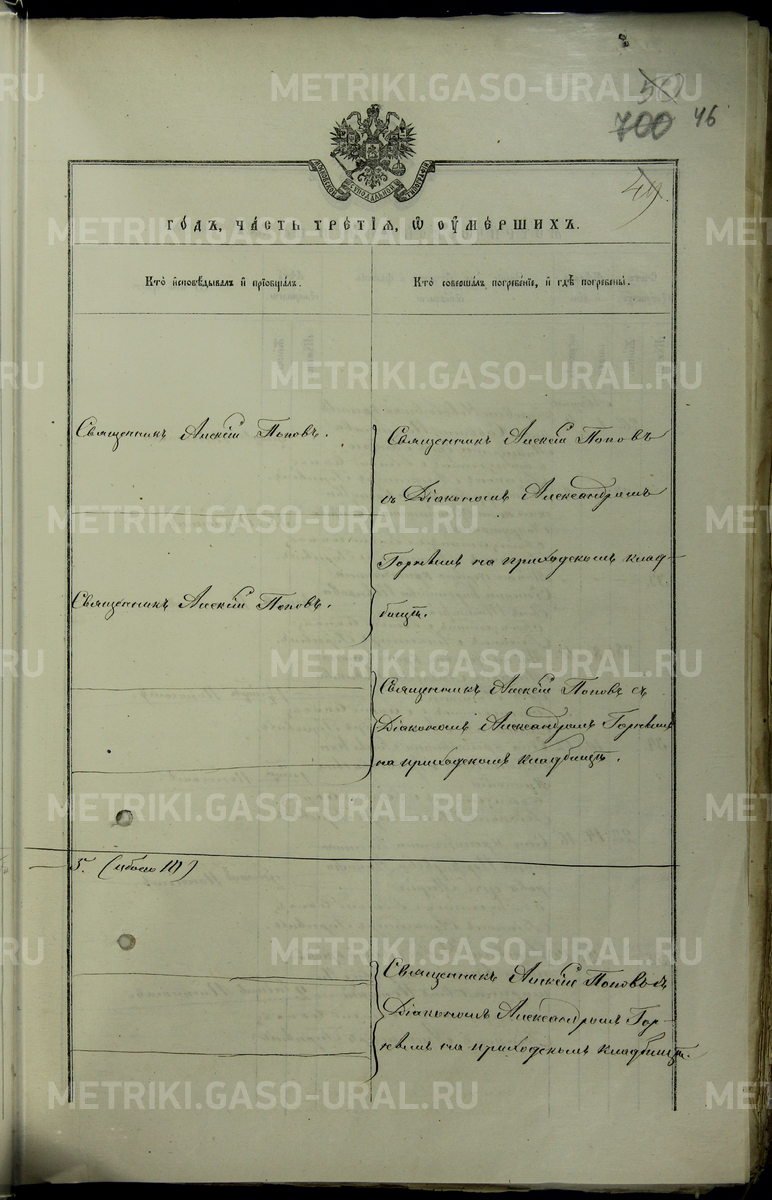 50
700 46
49.
МОСКОВСКОЙ СѴНОДАЛЬНОЙ ТИПОГРАФІИ
ГО́ДЪ, ЧА́СТЬ ТРЕ́ТІѦ, Ѡ҆ ОУ҆МЕ́РШИХЪ.
Кто̀ и҆сповѣ́дывалъ и҆ прїѡбща́лъ.
Кто̀ соверша́лъ погребе́нїе, и҆ гдѣ̀ погребены̀.
Священникъ Алексій Поповъ.
Священникъ Алексій Поповъ
съ Діакономъ Александромъ
на приходскомъ клад-
бищѣ.
Священникъ Алексій Поповъ.
Священникъ Алексій Поповъ съ
Діакономъ Александромъ
на приходскомъ кладбищѣ.
5. (обоего 10)
Священникъ Алексій Поповъ съ
Діакономъ Александромъ Гор-
на приходскомъ кладбищѣ.
METRIKI.GASO-URAL.RU